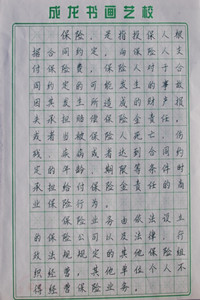 成龙书画艺校
保险，是指投保人根
据合同约定，向保险人支
付保险费，保险人对于合
同约定的可能发生的事故
因其发生所造成的财产损
失承担赔偿保险金责任，
或者当被保险人死亡、伤
残、疾病或者达到合同约
定的年龄、期限等条件时
承担给付保险金责任的商
业保险行为。
保险业务由依法设立
的保险公司以及法律、行
政法规规定的其他保险组
织经营，其他单位和个人不
得经营保险业务。